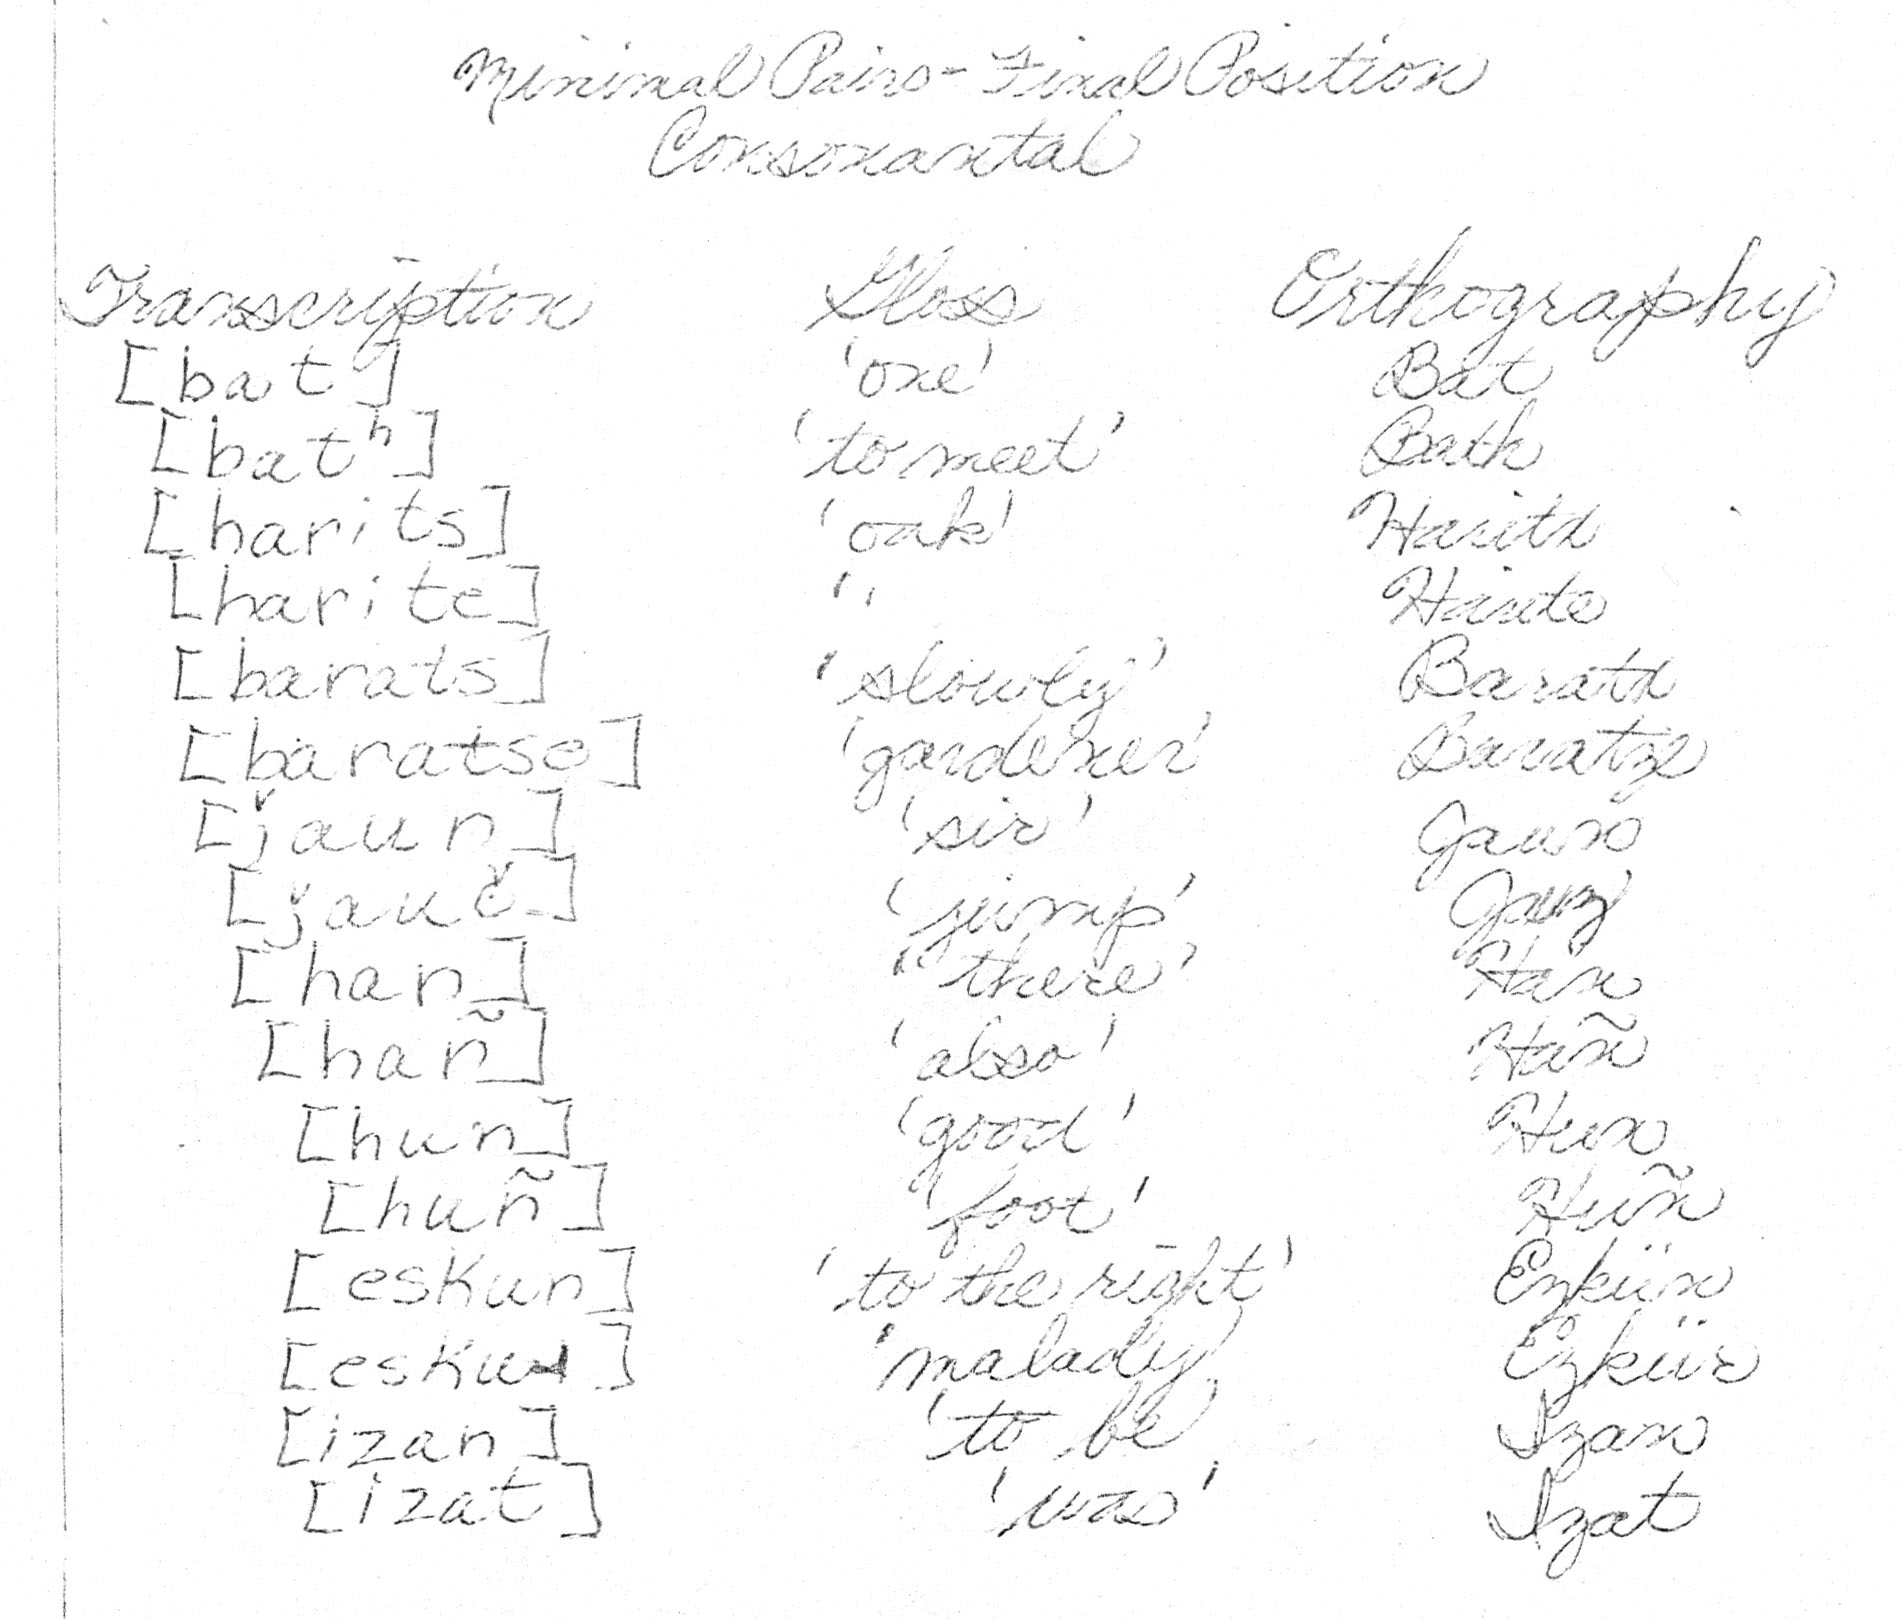 Minimal Pairs - Final Position
Consonantal
Transcription Gloss Orthography
[bat] 'one' Bat
[batʰ] 'to meet' Bath
[harits] 'oak' Haritx
[harite] '' Harite
[barats] 'slowly' Baratx
[baratse] 'gardener' Baratze
[ǰaun] 'sir' Jaun
[ǰauč] 'jump' Jauz
[han] 'there' Han
[hañ] 'also' Hañ
[hun] 'good' Hun
[huñ] 'foot' Huñ
[eskun] 'to the right' Ezkün
[esku ] 'malady Ezkür
[izan] 'to be Izan
[izat] 'was' Izat